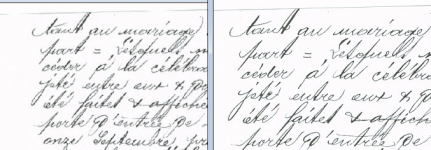 tant au mariage
part = Lesquels
céder à la célébra
jeté entre eux &
été faites & affiche
porte d'entrée de
onze Septembre, pr
tant au mariage
part = Lesquels
céder à la célébr
jeté entre eux &
été faites & affich
porte d'entrée de